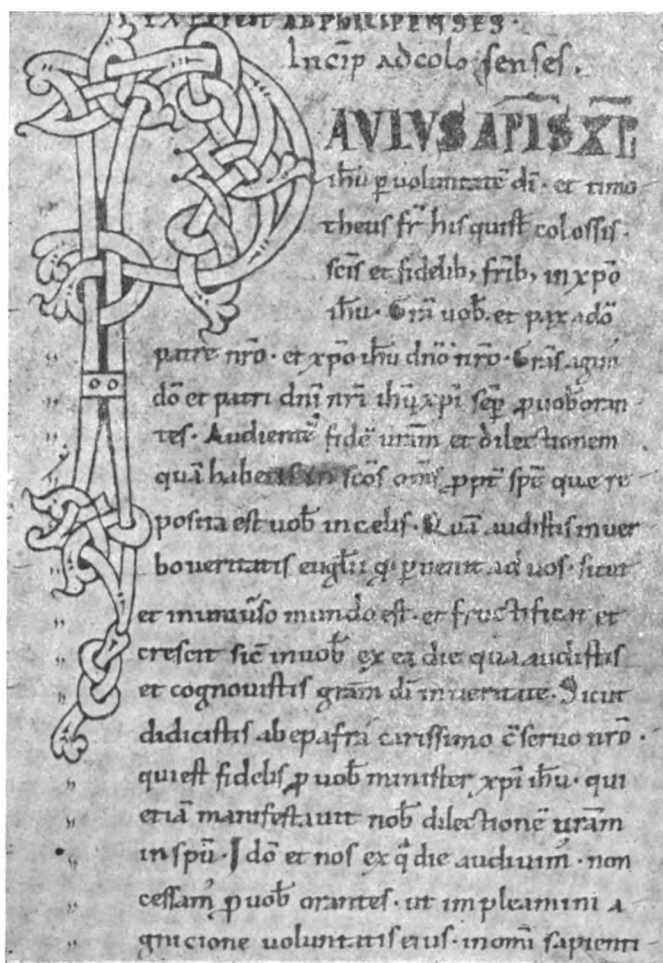 EXPLICIT AD PHILIPENSES·
Incip̄ ad colosenses.
PAULUS AP̄IS XP̄I
ih̄u p̱ voluntatē dī· et timo
theus fr̄ his qui st̄ colossis·
sc̄is et fidelib; fr̄ib; in xp̄o
ih̄u· Gr̄a uob̄ et pax a dō
patre nr̄o· et xp̄o ih̄u dn̄o nr̄o· Gr̄as agim̄
dō et patri dn̄i nr̄i ih̄u xp̄i sēp ꝓ uob̄ oran
tes· Audientē fidē ur̄am et dilectionem
quā habetis in sc̄os om̄s ꝓpt̄ spē que re
posita est uob̄ in celis· Quā audistis in uer
bo ueritatis eugl̄ii q̄ ꝑuenit ad uos· sicut
et in uniu̅so mundo est· et fructificat et
crescit sic̄ in uob̄ ex ea die qua audistis
et cognouistis gr̄am dī in ueritate· Sicut
didicistis ab epafra carissimo c̄seruo nr̄o·
qui est fidelis ꝓ uob̄ minister xp̄i ih̄u· qui
etiā manifestauit nob̄ dilectionē ur̄am
in sp̄u· Idō et nos ex q̄ die audiuim̄· non
cessam̄ ꝓ uob̄ orantes· ut impleamini a
gnicione uoluntatis eius· in om̄i sapienti